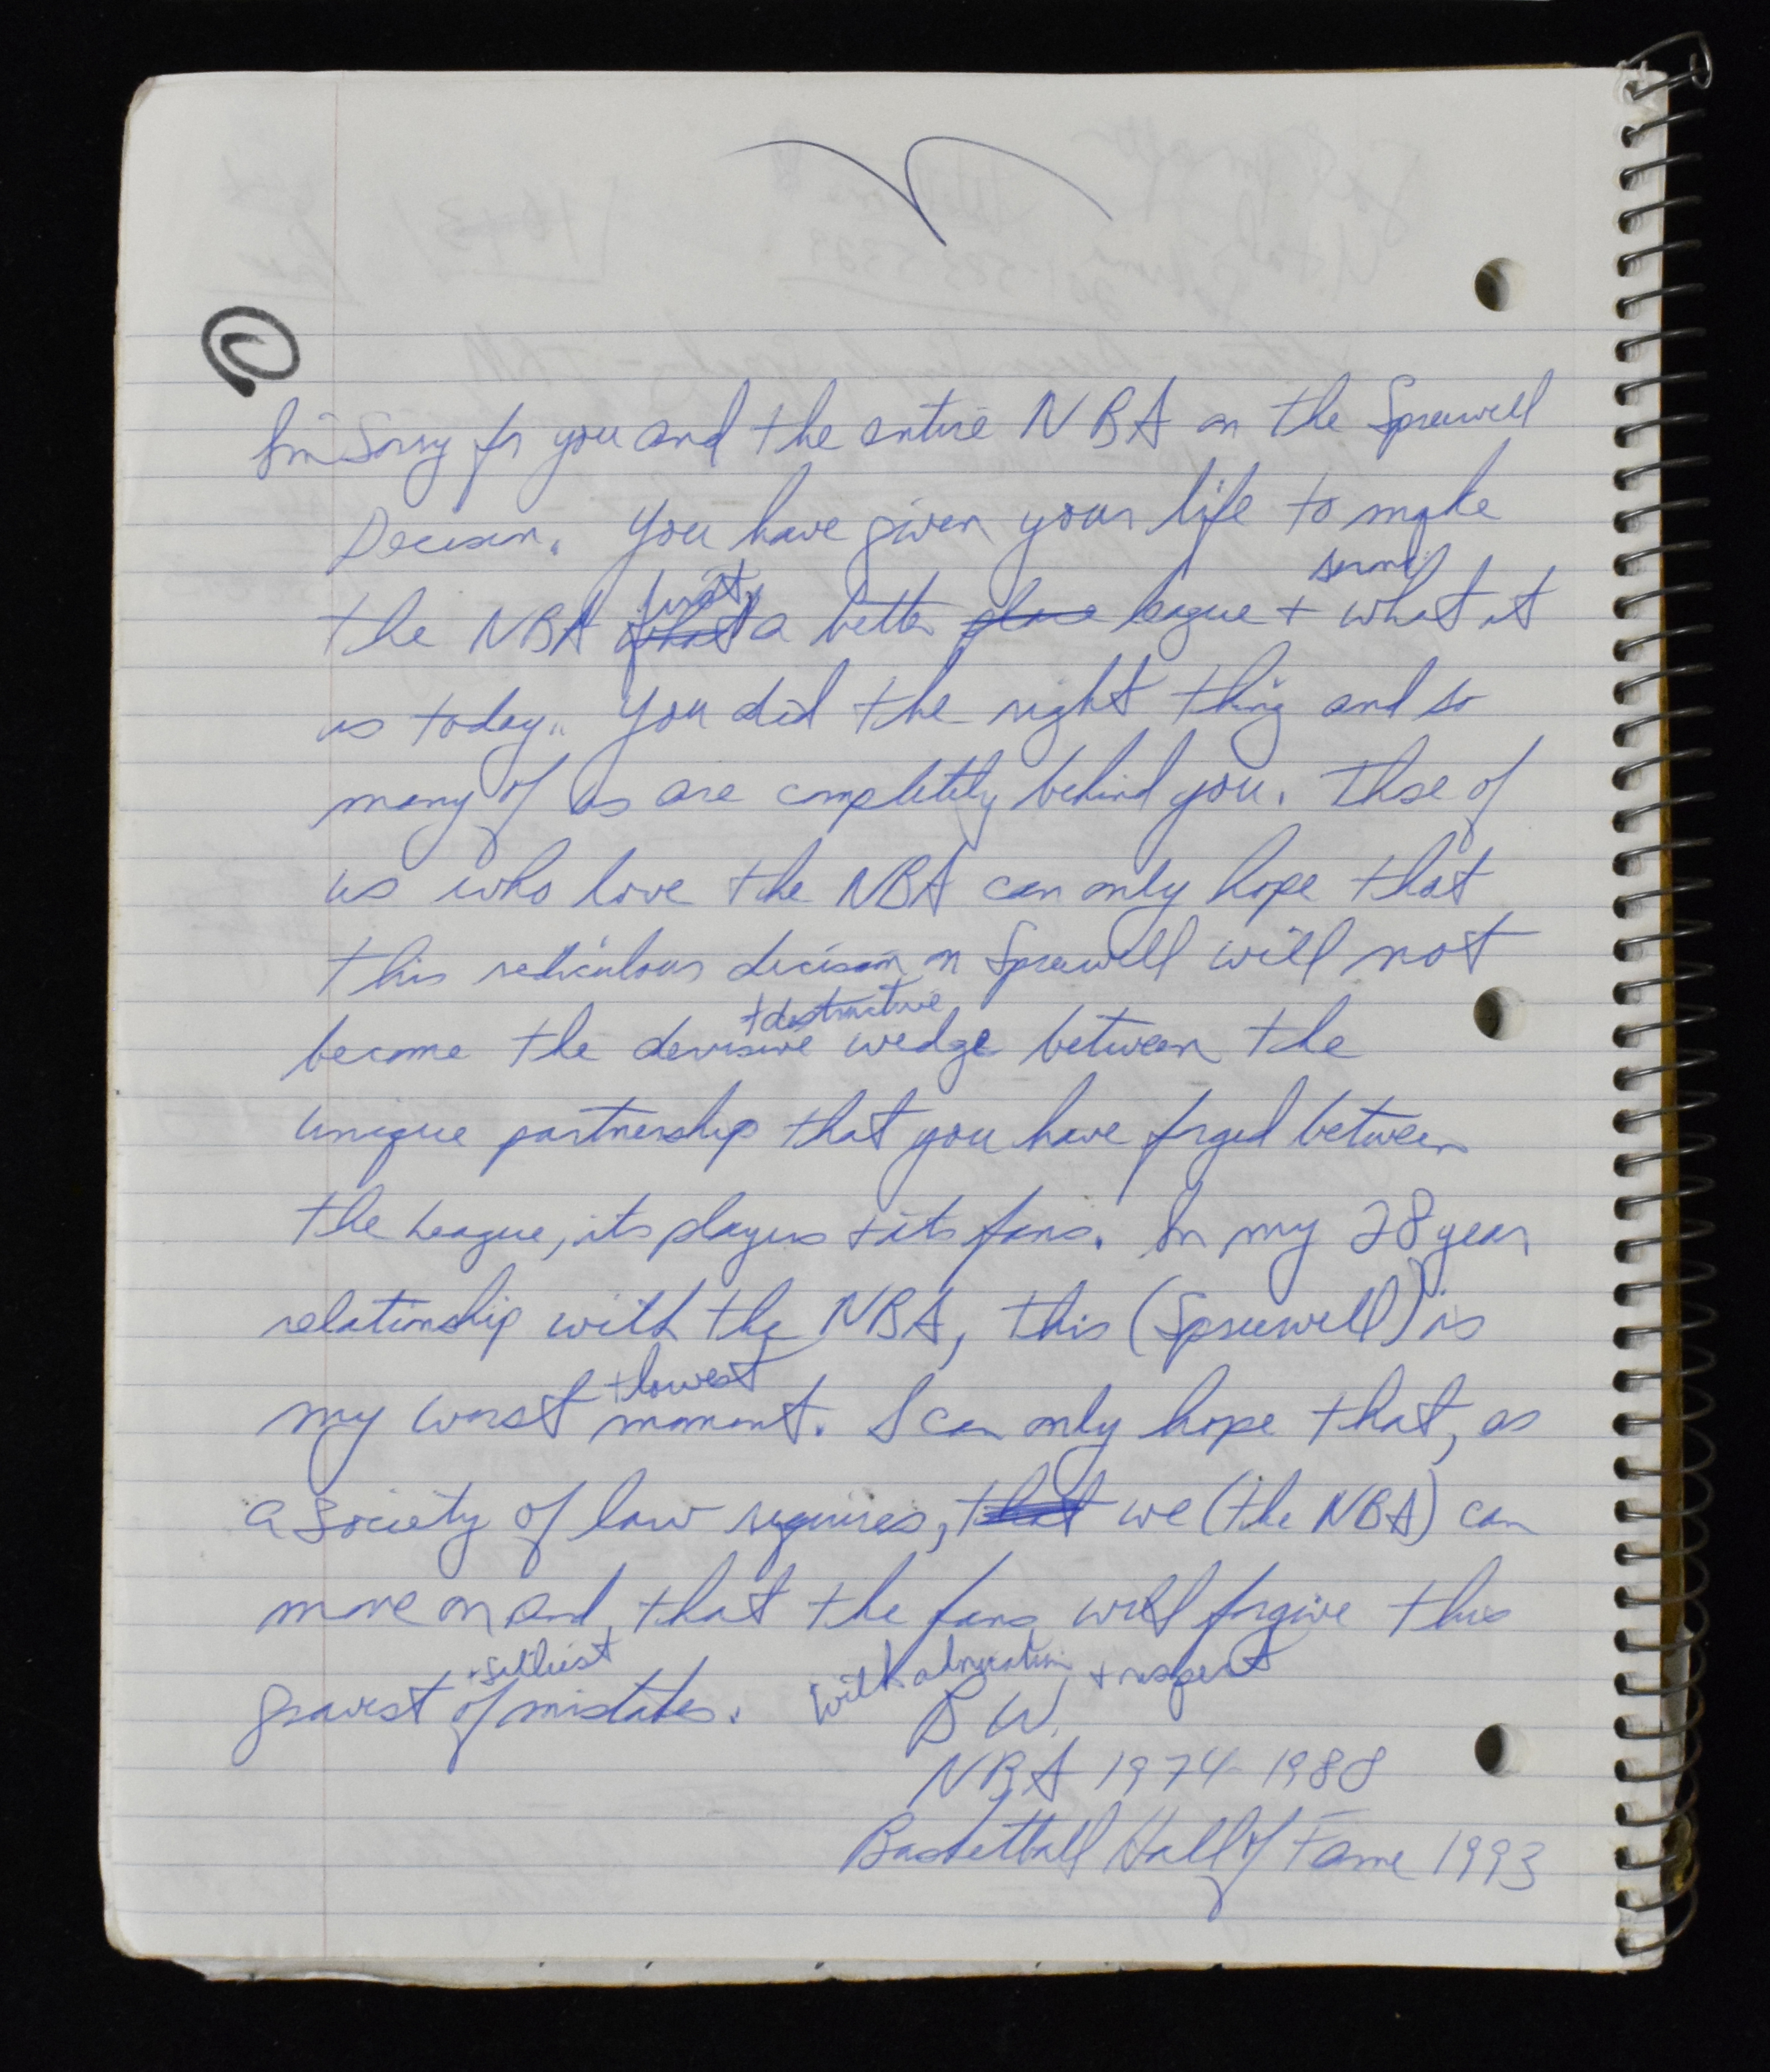 I'm Sorry for you and the entire NBA on the Spreewell
Decision. You have given your life to make
the NBA first, a better place league + second what it
is today. You did the right thing and so
many of us are completely behind you. Those of
us who love the NBA can only hope that
this rediculous decision on Sprewell will not
become the devisive + destructive wedge between the
unique partnership that you have forged between
the league, its players + its fans. In my 28 year
relationship with the NBA, this (Spreewell) is
my worst + lowest moment. I can only hope that, as
a society of law requires, that we (the NBA) can
move on and that the fans will forgive this
gravest + silliest of mistakes. With admiration + respect
B W.
NBA 1974-1988
Basketball Hall of Fame 1993